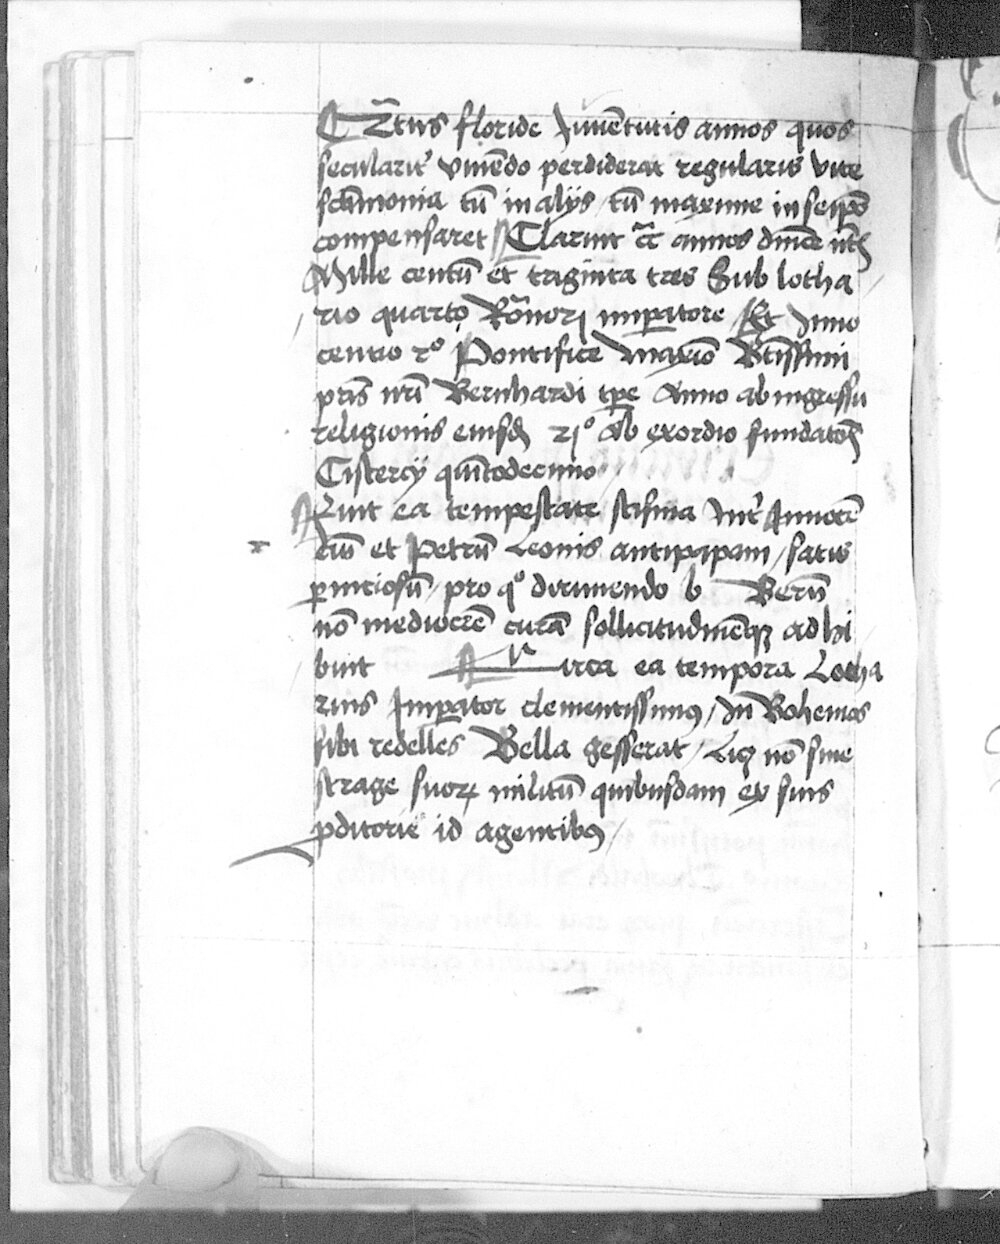 Et̄tus floride Iuuētutis annos quos
seculariť viuēdo perdiderat regularis vite
sct̄imonia tū in alijs / tū maxime in seip̄o
compensaret // Claruit cͬc annos dn̄ice
Mille centū et triginta tres Sub lotha
/ rio quarto Ro̅noꝝ imꝑatore / Et Inno
centio 2º Pontifice maxīo Bt̄issimi
pr̄is nr̄i Bernhardi tꝑe Anno ab ingressu
religionis eiusdē 21º Ab exordio fundatōis
Cistercij quītodecimo
Fuit ea tempestate scisma Int̄ Innocē
ciū et Petrū Leonis antipapam / satis
ꝑnitiosū / pro qº dirimendo b Berñ
nō mediocrē curā sollicitudinēqꝫ adhi
buit Circa ea tempora Lotha
rius Imꝑator clementissimꝰ / In Bohemos
sibi rebelles Bella gesserat / Licꝫ nō sine
strage suoꝝ militū quibusdam ex suis
ꝓditorie id agentibꝰ /